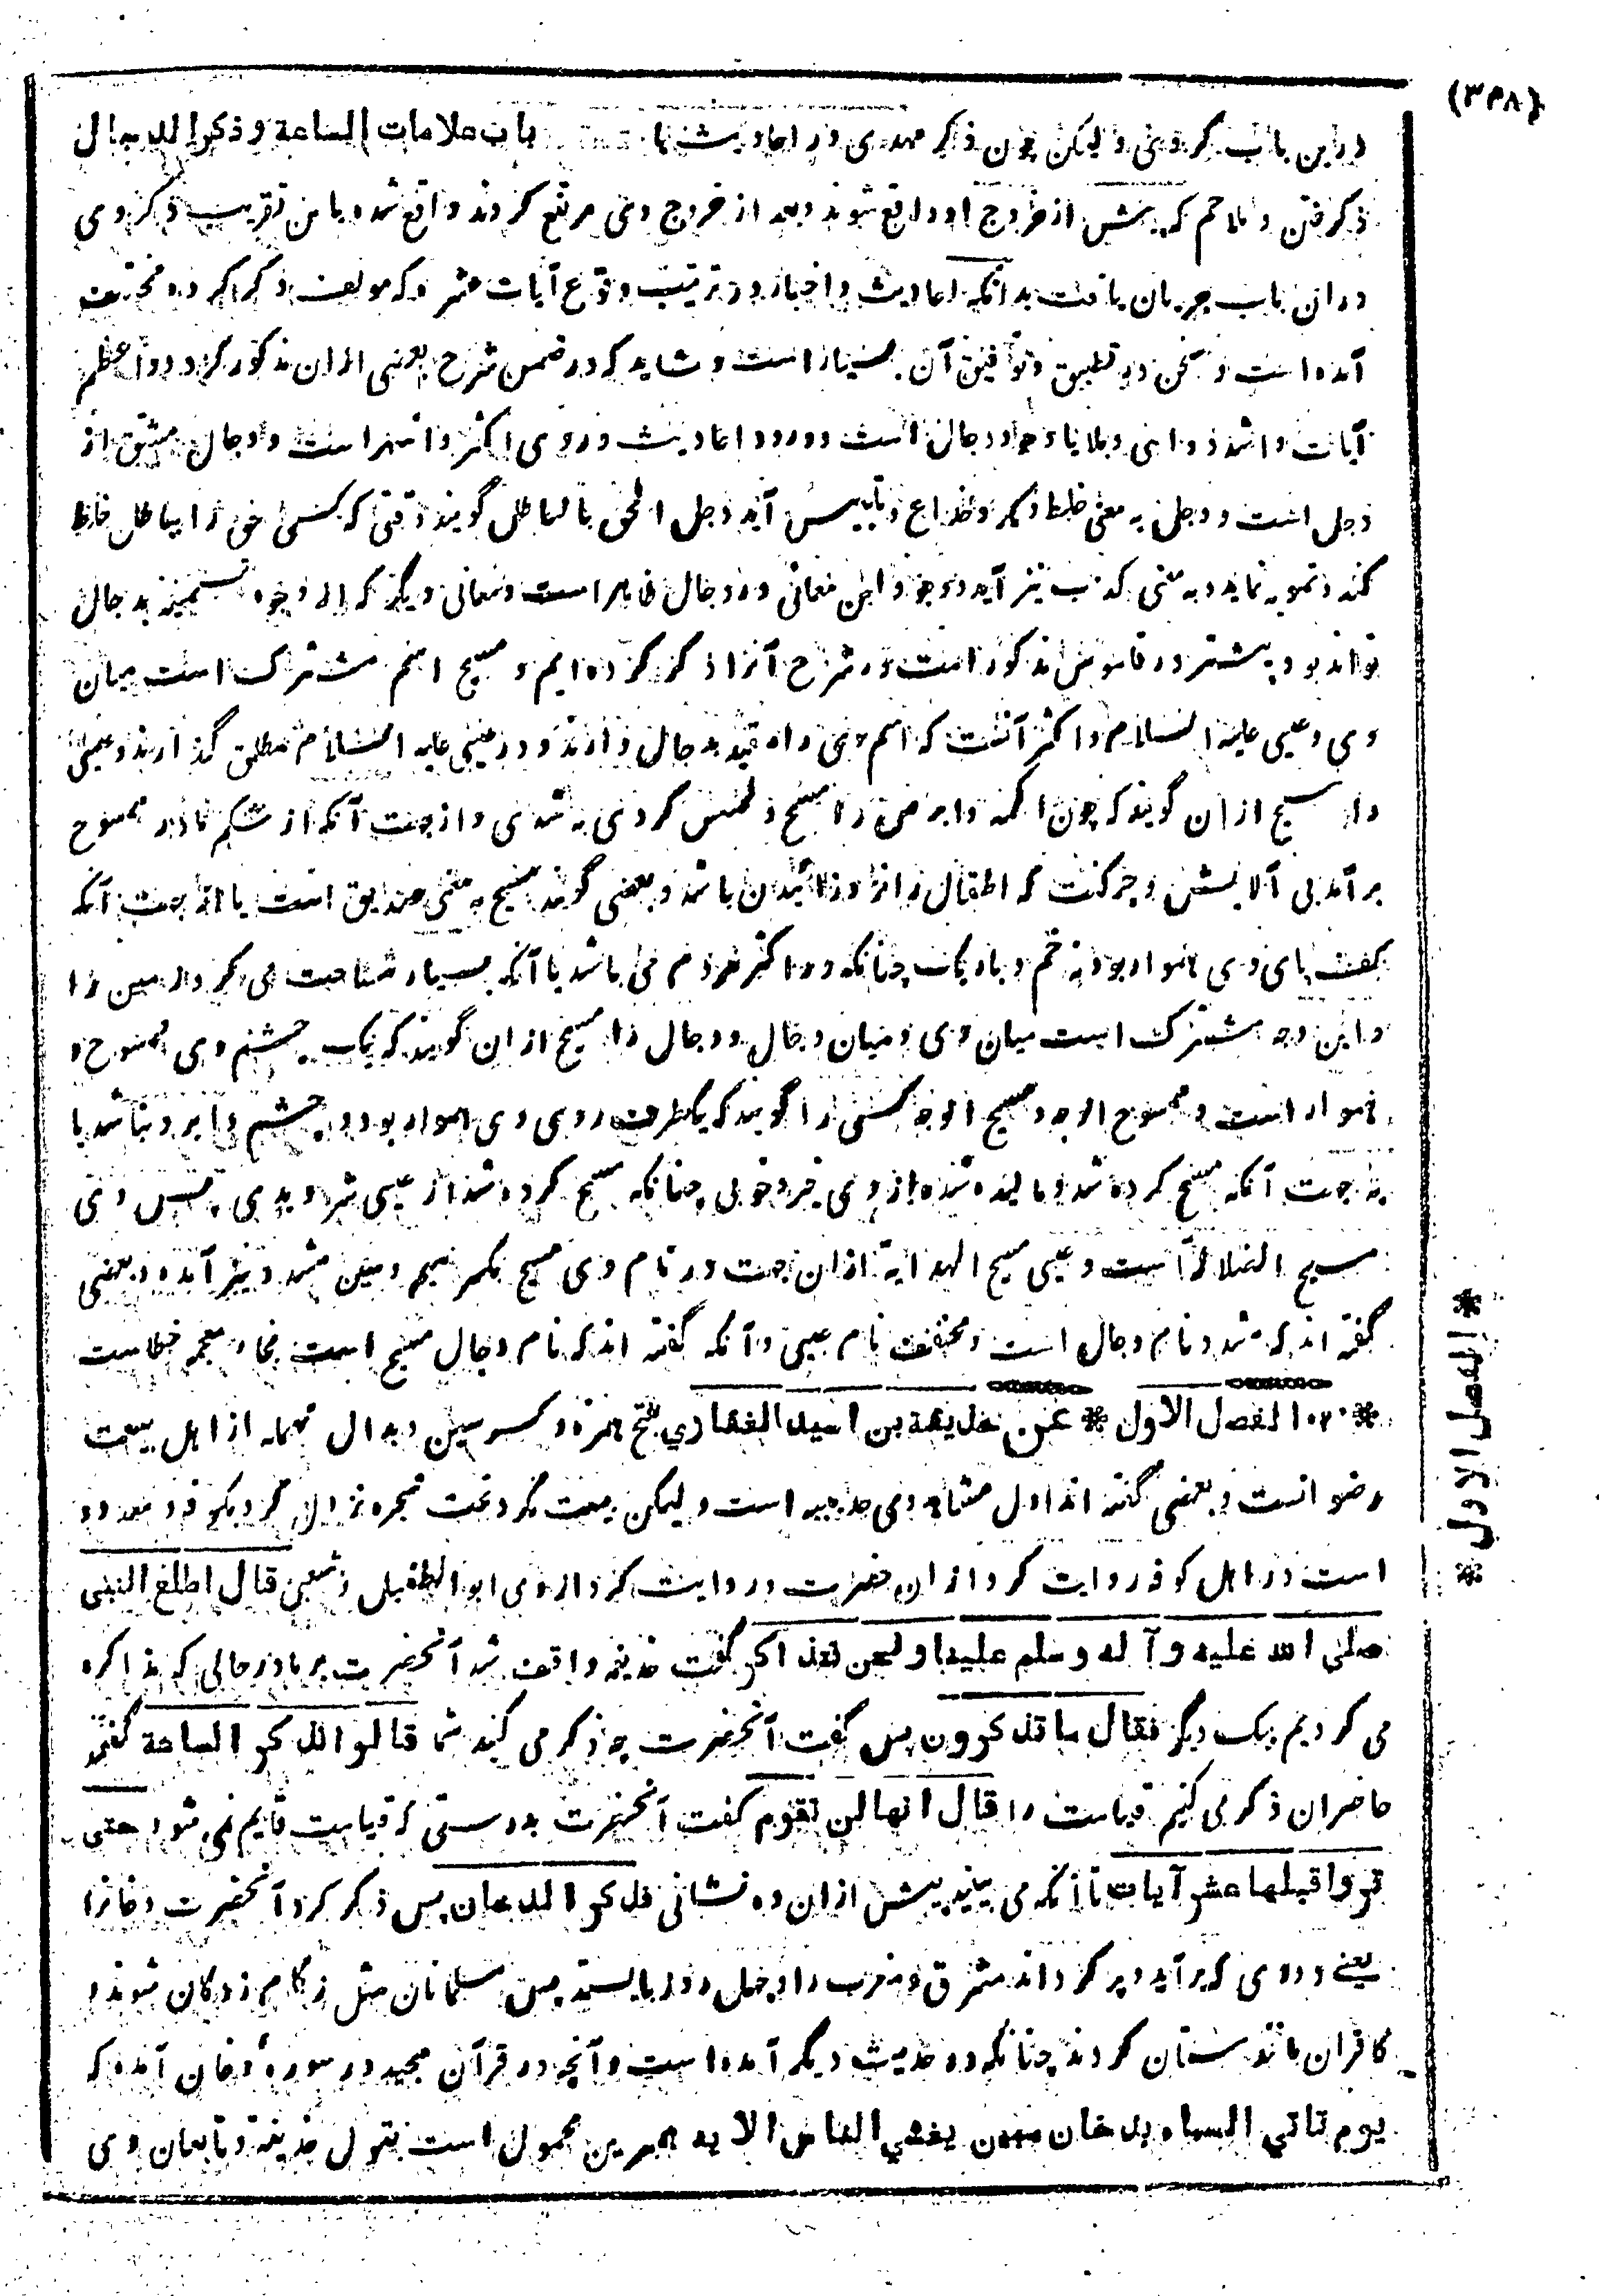 (۳۳۸)
در این باب کردنی و لیکن چون ذکر مهدی در احادیث باب علامات الساعة و ذکر الدجال
ذکر فتن و ملاحم که پیش از خروج او واقع شوند و بعد از خروج وی مرتفع کردند واقع شده باین تقریب ذکر وی
در ان باب جریان یافت بدانکه احادیث و اخبار در ترتیب وقوع آیات عشر که مولف ذکر کرده مختلف
آمده است و سخن در تطبیق و توفیق آن بسیار است و شاید که در ضمن شرح بعضی از ان مذکور کردد و اعظم
آیات و اشد دواهی و بلایا وجود دجال است و ورود احادیث در وی اکثر و اشهر است و دجال مشتق از
دجل است و دجل به معنی خلط و مکر و خداع و تلبیس آید دجل الحق بالباطل گویند وقتی که کسی حق را بباطل خلط
کند و تمویه نماید و به معنی کذب نیز آید و وجود این معانی در دجال ظاهر است و معانی دیگر که از وجوه تسمیه بدجال
تواند بود پیشتر در قاموس مذکور است و در شرح آنرا ذکر کرده ایم و مسیح اسم مشترک است میان
وی و عیسی علیه السلام و اکثر آنست که اسم وی را مقید بدجال دارند و در عیسی علیه السلام مطلق گذارند و عیسی
را مسیح از ان گویند که چون اکمه و ابرص را مسح و لمس کردی به شدی و از جهت آنکه از شکم مادر ممسوح
بر آمد بی آلایش و چرکت که اطفال را در زائیدن باشد و بعضی گویند مسیح به معنی صدیق است یا از جهت آنکه
کفت پای وی هموار بود نه خم و باریک چنانکه در اکثر مردم می باشد یا آنکه بسیار سیاحت می کرد زمین را
و این وجه مشترک است میان وی و میان دجال و دجال را مسیح از ان گویند که یک چشم وی ممسوح و
هموار است و ممسوح الوجه و مسیح الوجه کسی را گویند که یکطرف روی وی هموار بود و چشم و ابرو نباشد یا
به جهت آنکه مسح کرده شد و مالیده شده از وی خیر و خوبی چنانکه مسح کرده شد از عیسی شر و بدی پس وی
مسیح الضلالة است و عیسی مسیح الهدایة از ان جهت در نام وی مسیح بکسر میم و سین مشدد نیز آمده و بعضی
گفته اند که مشدد نام دجال است و مخفف نام عیسی و آنکه گفته اند که نام دجال مسیخ است بخاء معجمه خطاست
* الفصل الاول * عن حذیفة بن اسید الغفاري بفتح همزه و کسر سین و بدال مهمله از اهل بیعت
رضوانست و بعضی گفته اند اول مشاهد وی حدیبیه است و لیکن بیعت نکرد تحت شجره نزول کرد بکوفه و معدود
است در اهل کوفه روایت کرد از ان حضرت و روایت کرد از وی ابو الطفیل و شعبی قال اطلع النبی
صلی الله علیه و آله و سلم علینا و نحن نتذاکر گفت حذیفه واقف شد آنحضرت بر ما در حالی که مذاکره
می کردیم یک دیگر فقال ما تذکرون پس گفت آنحضرت چه ذکر می کنید شما قالوا نذکر الساعة گفتند
حاضران ذکر می کنیم قیامت را قال انها لن تقوم گفت آنحضرت بدرستی که قیامت قایم نمی شود حتی
تروا قبلها عشر آیات تا آنکه می بینید پیش از ان ده نشانی فذکر الدخان پس ذکر کرد آنحضرت دخان را
یعنے دودی که برآید و پر کرداند مشرق و مغرب را و چهل روز بایستد پس مسلمانان مثل زکام زدکان شوند و
کافران مانند مستان کردند چنانکه در حدیث دیگر آمده است و آنچه در قرآن مجید در سوره دخان آمده که
یوم تاتي السماء بدخان مبین یغشي الناس الایه همبرین محمول است بقول حذیفه و تابعان وی
* الفصل الاول *